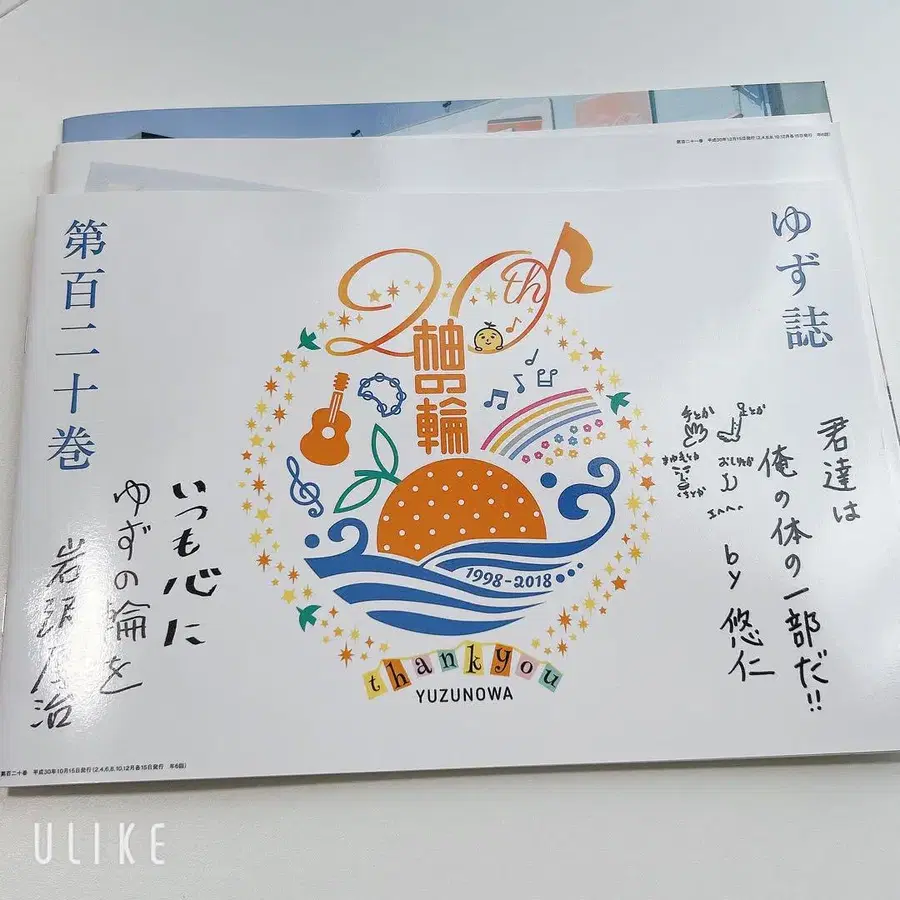 第百二十一巻 平成30年12月15日発行(2,4,6,8,10,12月各15日発行) 年6回)
ゆず誌
第百二十巻
20th
柚の輪
1998-2018
thankyou
YUZUNOWA
君達は
俺の体の一部だ!!
by 悠仁
手とか
足とか
おしりとか
いつも心に
ゆずの輪を
岩沢厚治
第百二十巻 平成30年10月15日発行(2,4,6,8,10,12月各15日発行 年6回)
ULIKE